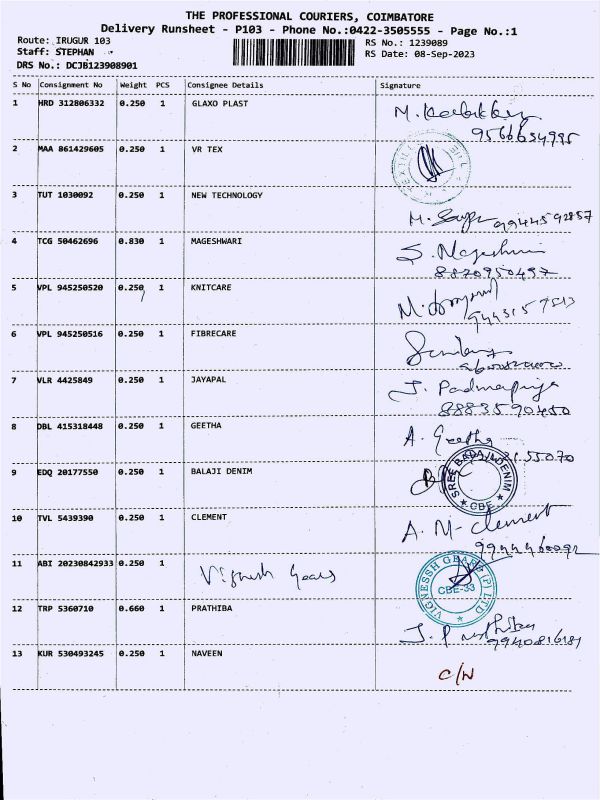 THE PROFESSIONAL COURIERS, COIMBATORE
Delivery Runsheet - P103 - Phone No.:0422-3505555 - Page No.:1
Route: IRUGUR 103
RS No.: 1239089
Staff: STEPHAN
RS Date: 08-Sep-2023
DRS No.: DCJB123908901
S No Consignment No Weight PCS Consignee Details Signature
1 HRD 312806332 0.250 1 GLAXO PLAST
2 MAA 861429605 0.250 1 VR TEX
3 TUT 1030092 0.250 1 NEW TECHNOLOGY
M.
4 TCG 50462696 0.830 1 MAGESHWARI
8820950497
5 VPL 945250520 0.250 1 KNITCARE
6 VPL 945250516 0.250 1 FIBRECARE
7 VLR 4425849 0.250 1 JAYAPAL
J. Padmapriya
8883590450
8 DBL 415318448 0.250 1 GEETHA
A. Geetha
9 EDQ 20177550 0.250 1 BALAJI DENIM
SREE BALAJI DENIM
CBE
10 TVL 5439390 0.250 1 CLEMENT
A. M. Clement
11 ABI 20230842933 0.250 1 Vignesh Gears
VIGNESSH GEARS (P) LTD
CBE-33
12 TRP 5360710 0.660 1 PRATHIBA
9940816181
13 KUR 530493245 0.250 1 NAVEEN
C/N